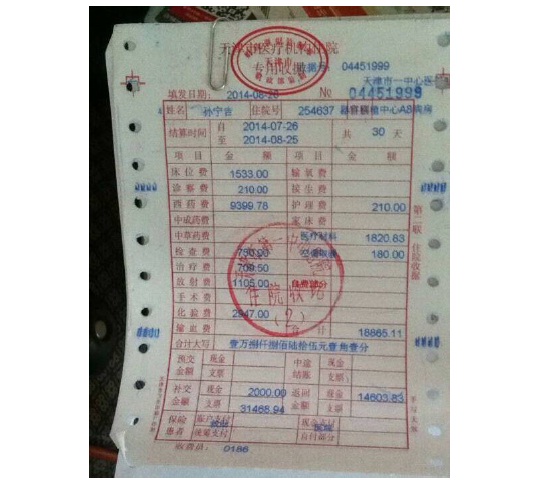 天津市医疗机构住院
专用收据 收据号 04451999
天津市一中心医
填发日期: 2014-08-26 № 04451999
姓名 孙宁吉 住院号 254637 器官移植中心A8病房
结算时间 自 2014-07-26 至 2014-08-25 共 30 天
项目 金额 项目 金额
床位费 1533.00 输氧费
诊察费 210.00 接生费
西药费 9399.78 护理费 210.00
中成药费 家床费
中草药费 医疗材料 1820.83
检查费 空调取暖 180.00
治疗费 709.50
放射费 1105.00 自费部分
手术费
化验费 2947.00
输血费 合计 18865.11
合计大写 壹万捌仟捌佰陆拾伍元壹角壹分
预交金额 现金 支票 中途结账 现金 支票
补交金额 现金 2000.00 支票 31468.94 退回金额 现金 14603.83 支票
保险患者 账户支付 统筹支付 现金支付 自付部分
收费员: 0186
第二联 住院收据
手写无效
住院收讫
(2)